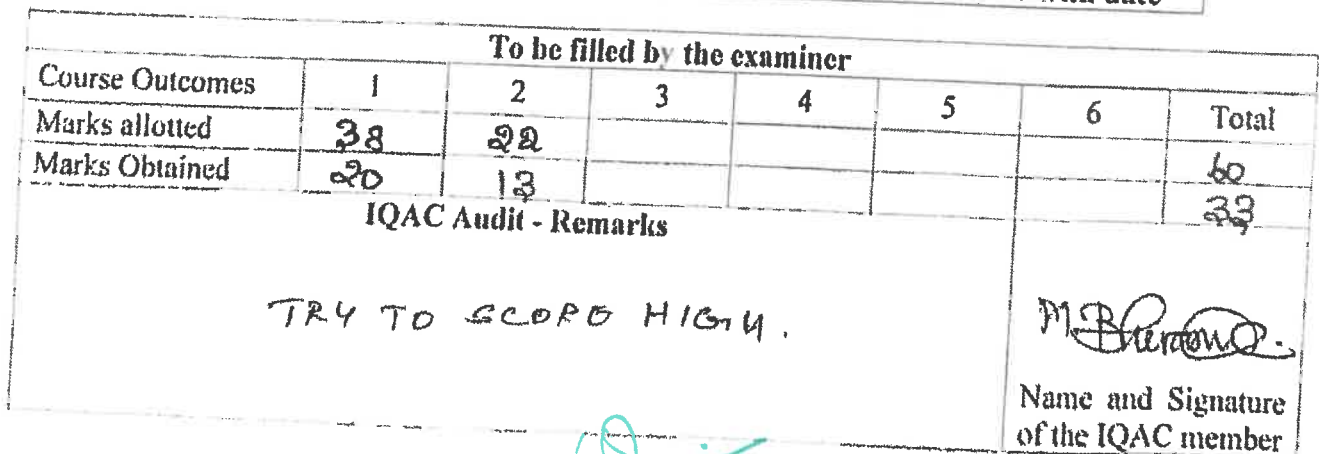 with date
To be filled by the examiner
Course Outcomes 1 2 3 4 5 6 Total
Marks allotted 38 22 60
Marks Obtained 20 13 33
IQAC Audit - Remarks
TRY TO SCORE HIGH.
Name and Signature
of the IQAC member